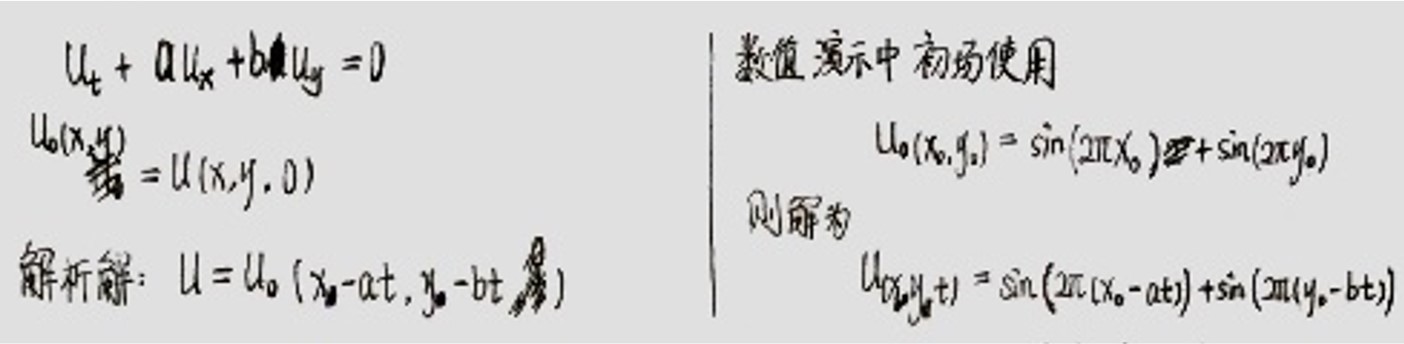 u_t + a u_x + b u_y = 0
u_0(x,y) = u(x,y,0)
解析解: u = u_0 (x-at, y-bt)
数值演示中初场使用
u_0(x_0,y_0) = sin(2πx_0) + sin(2πy_0)
则解为
u(x,y,t) = sin(2π(x_0-at)) + sin(2π(y_0-bt))